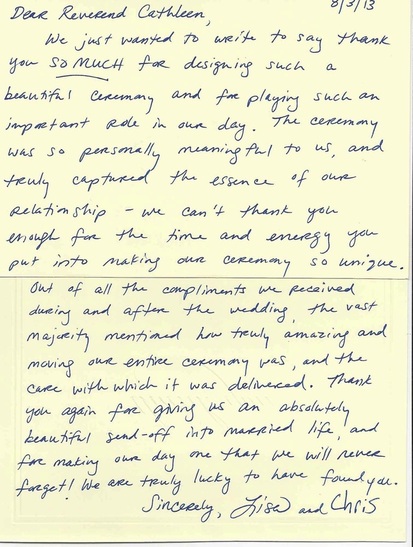 8/3/13
Dear Reverend Cathleen,
We just wanted to write to say thank
you SO MUCH for designing such a
beautiful ceremony and for playing such an
important role in our day. The ceremony
was so personally meaningful to us, and
truly captured the essence of our
relationship - we can't thank you
enough for the time and energy you
put into making our ceremony so unique.
Out of all the compliments we received
during and after the wedding, the vast
majority mentioned how truly amazing and
moving our entire ceremony was, and the
care with which it was delivered. Thank
you again for giving us an absolutely
beautiful send-off into married life, and
for making our day one that we will never
forget! We are truly lucky to have found you.
Sincerely, Lisa and Chris